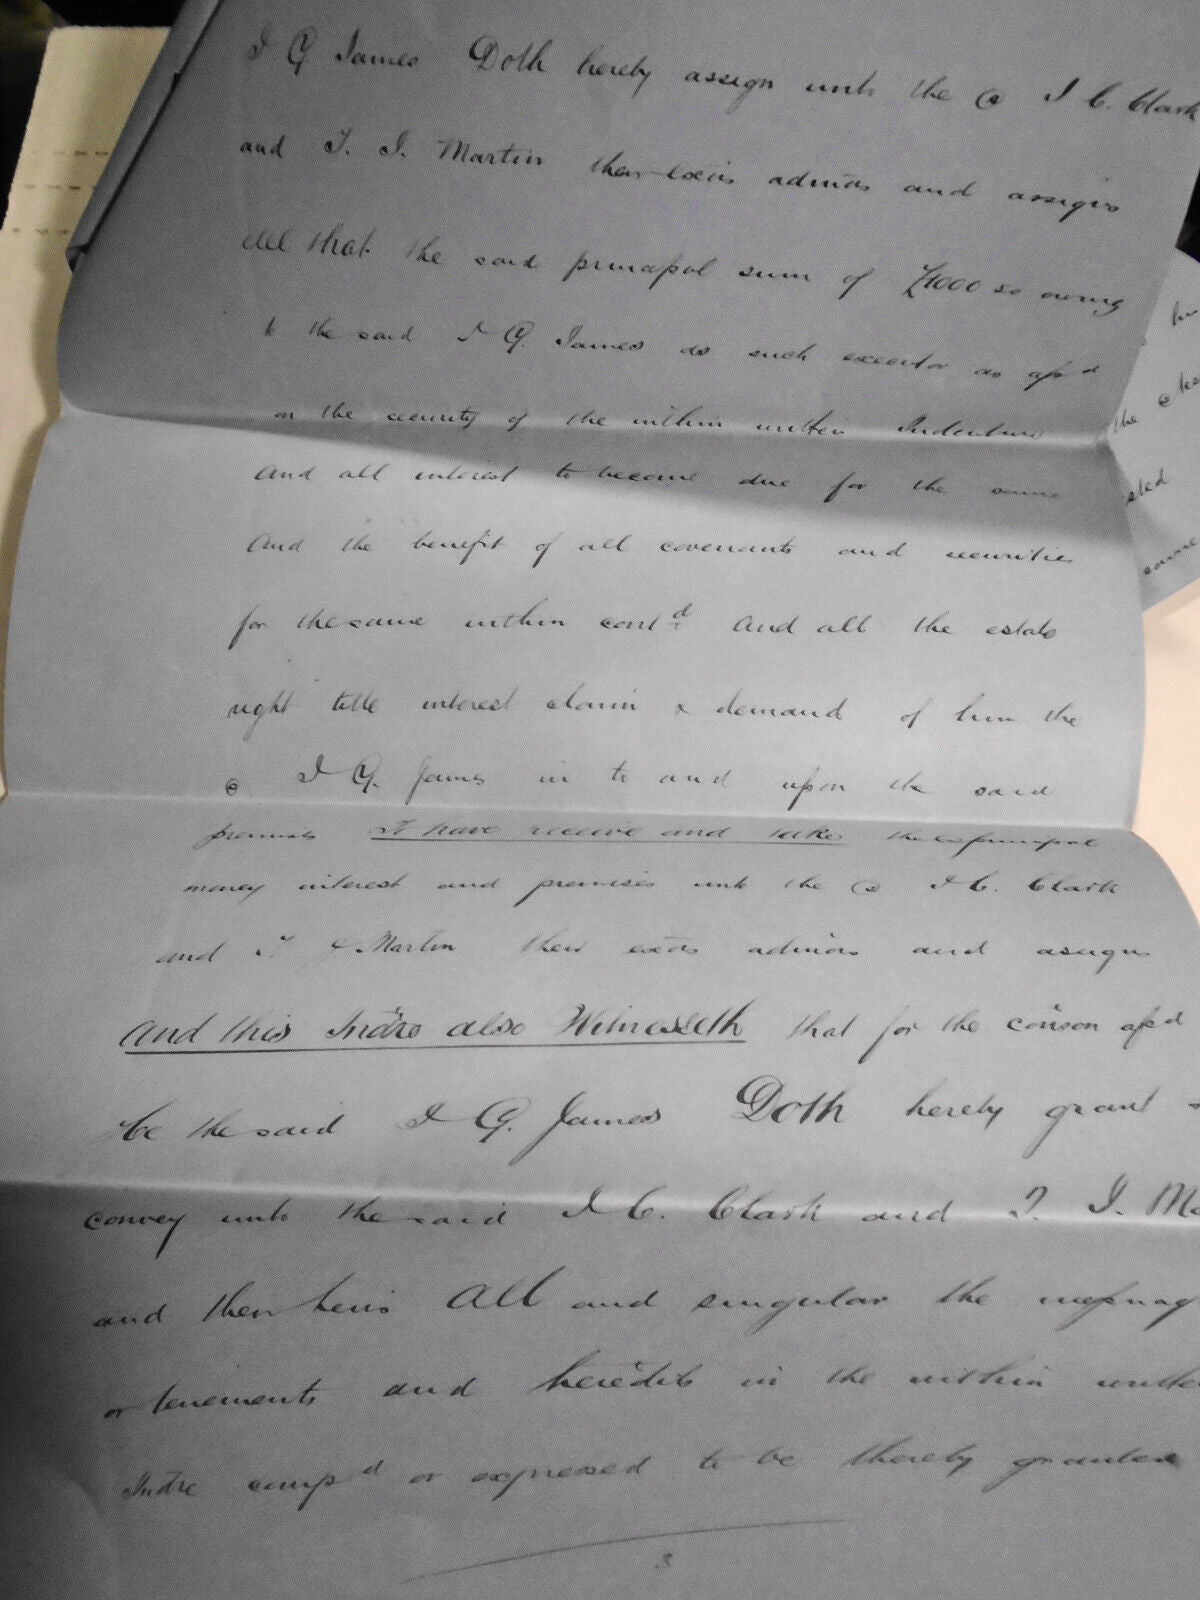 J G James Doth hereby assign unto the s J C. Clark
and T. J. Martin their exōrs admōrs and assigns
All that the said principal sum of £1000 so owing
to the said J G. James as such executor as afsd
on the security of the within written Indenture
And all interest to become due for the same
And the benefit of all covenants and securities
for the same within contd And all the estate
right title interest claim & demand of him the
s J G. James in to and upon the said
premises To have receive and take the s principal
money interest and premises unto the s J C. Clark
and T. J Martin their exōrs admōrs and assigns
And this Indre also Witnesseth that for the conson afsd
He the said J G. James Doth hereby grant
convey unto the said J C. Clark and T. J. Ma
and their heirs All and singular the messuag
or tenements and heredits in the within writte
Indre compd or expressed to be thereby granted
3
the
sted
same